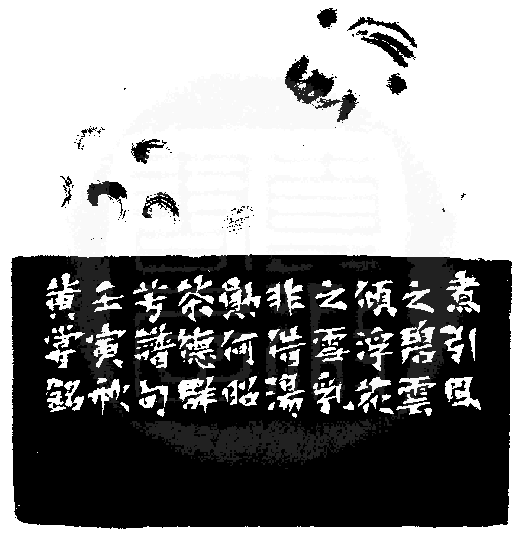 煮引風
之碧雲
傾浮花
之雪乳
非借湯
勳何昭
茶德群
芳譜句
壬寅秋
黃雪銘